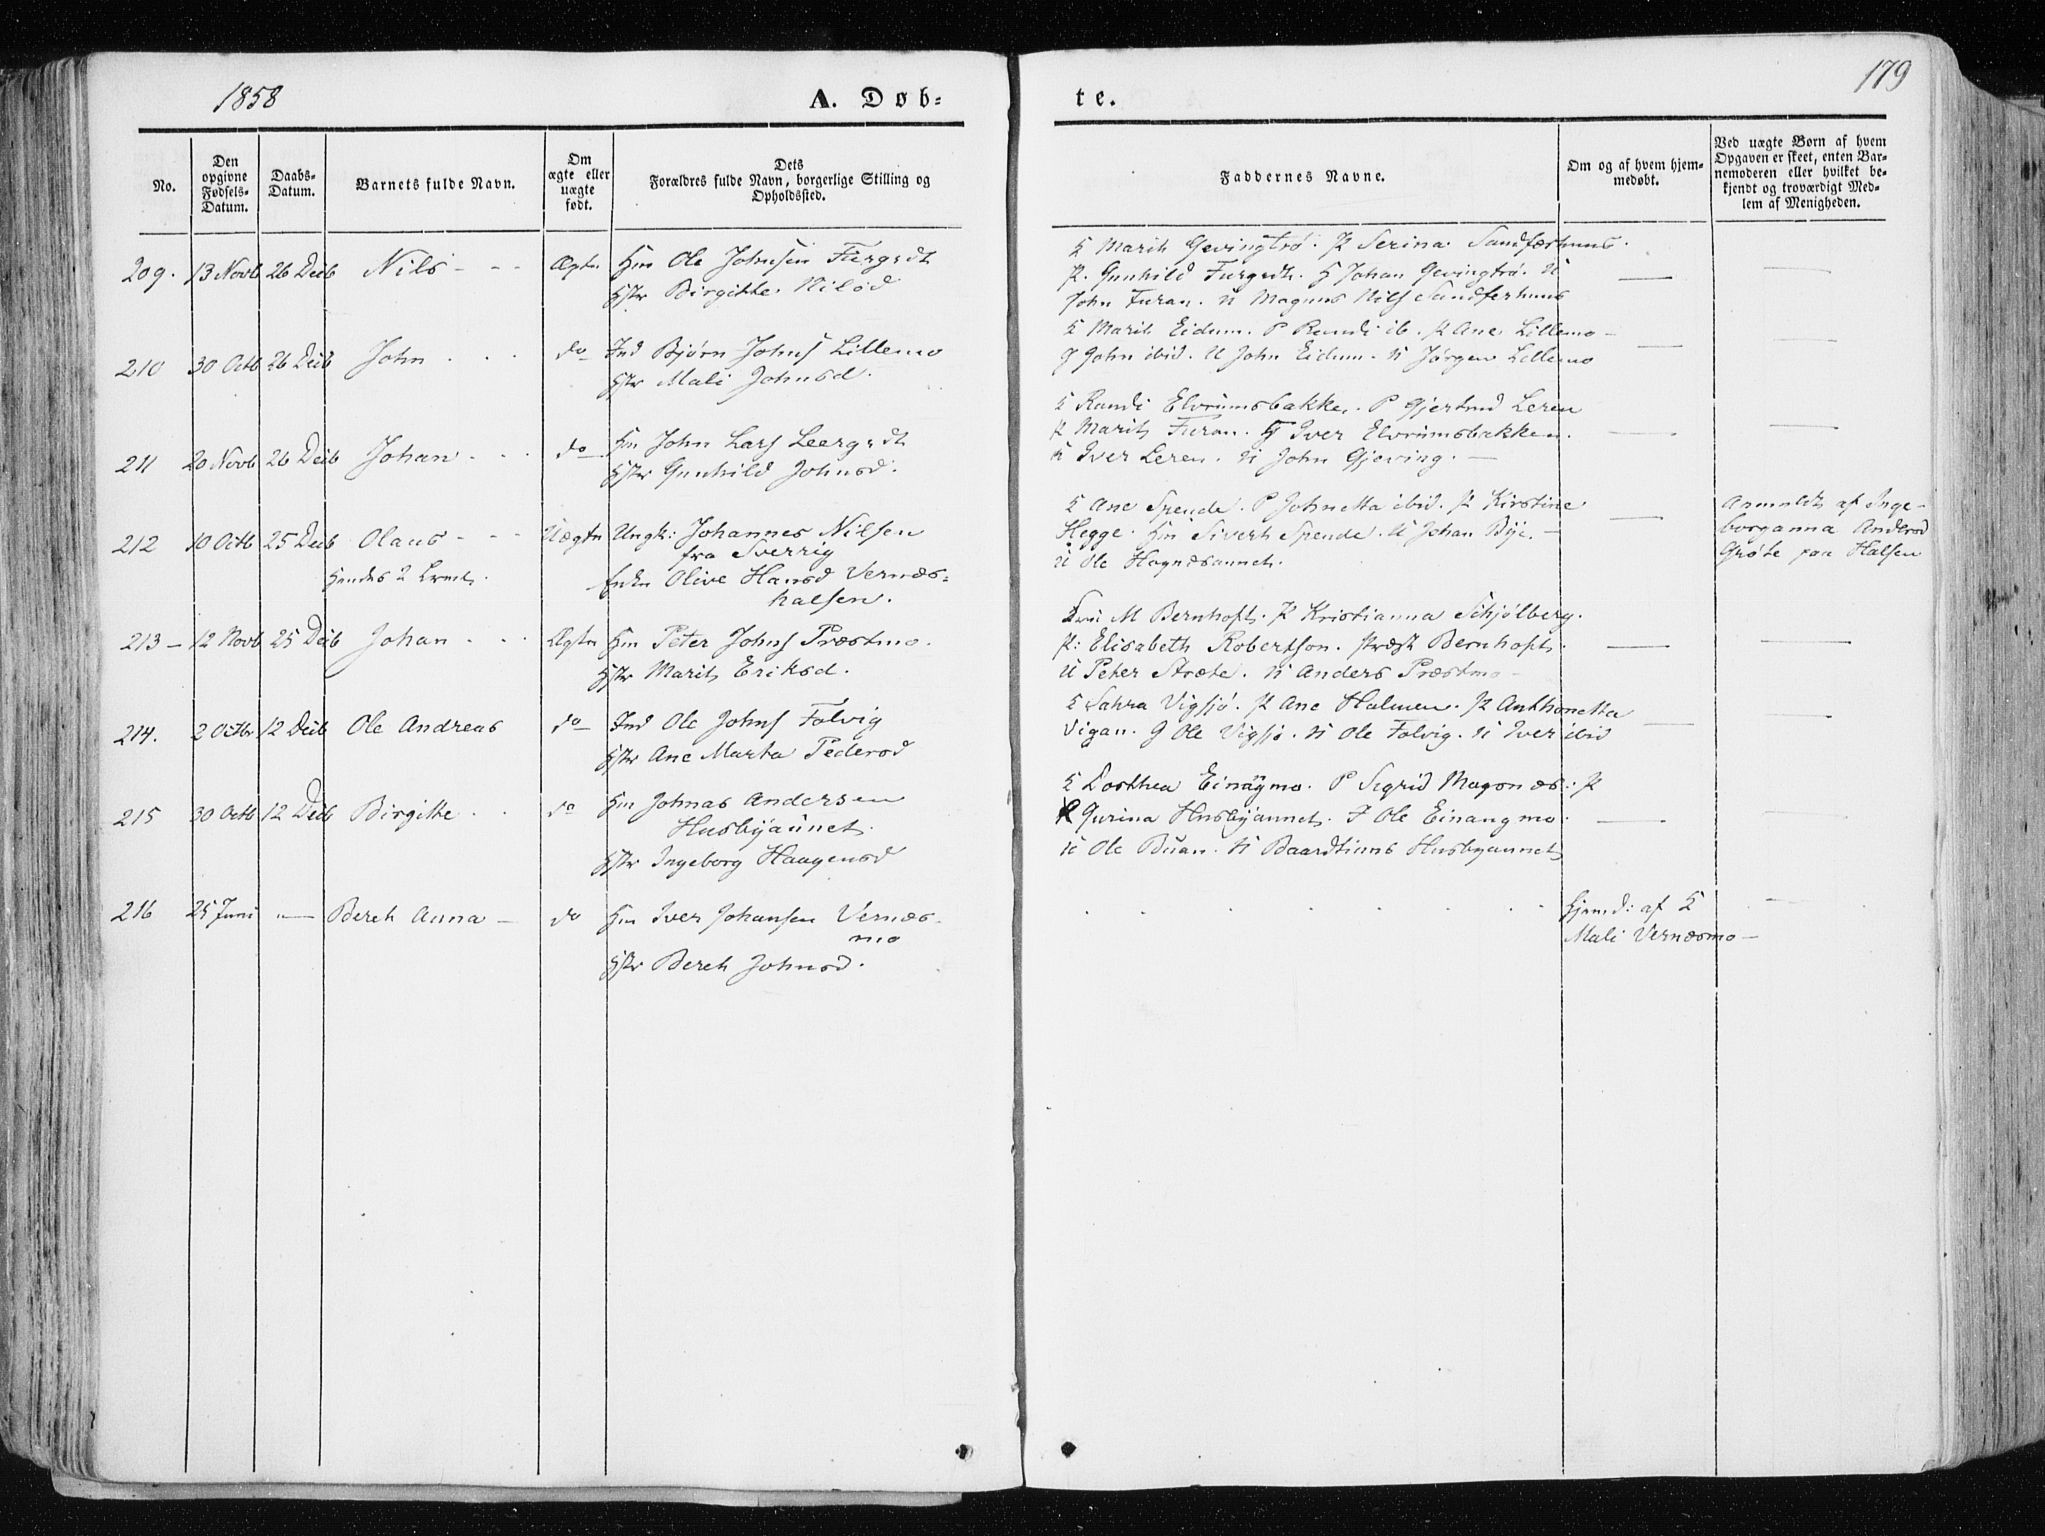 1858
A. Døb-
te.
179
No.
Den opgivne Fødsels-Datum.
Daabs-Datum.
Barnets fulde Navn.
Om ægte eller uægte født.
Dets Forældres fulde Navn, borgerlige Stilling og Opholdssted.
Faddernes Navne.
Om og af hvem hjem-medøbt.
Ved uægte Børn af hvem Opgaven er skeet, enten Bar-nemoderen eller hvilket be-kjendt og troværdigt Med-lem af Menigheden.
209. 13 Novb 26 Decb Nils - - - Ægte Hm Ole Johnsen
Hstr Birgitte Nilsd
K Marit Gevingtrø. P Serina Sandferhuus.
P. Gunhild . G Johan Gevingtrø. U
John Furan. U Magnus Nils Sandferhuus
210 30 Octb 26 Decb John . . . do Ind Bjørn Johns Lillemo
Hstr Mali Johnsd.
K Marit Eidum. P Randi ib. P Ane Lillemo -
G John ibid. U John Eidum. U Jørgen Lillemo
211 20 Novb 26 Decb Johan . . . do Hm John Lars
Hstr Gunhild Johnsd.
K Randi Elvrumsbakke. P Gjertrud Leren
P Marit Furan. G Iver Elvrumsbakken.
U Iver Leren. U John Gjeving. -
212 10 Octb 25 Decb Olaus - - - Uægte Ungk: Johannes Nilsen
fra Sverrig
Hendes 2 Leverm.
Enke Olive Hansd Vernes-
halsen.
K Ane Spende. P Johnetta ibid. P Kirstine
Hegge. Hm Sivert Spende. U Johan Bye. -
U Ole Hognesaunet.
Anmeldt af Inge-
borganna Andersd
Grøte paa Halsen
213 - 12 Novb 25 Decb Johan . . . Ægte Hm Peter Johns Præstmo.
Hstr Marit Eriksd.
Fru M Bernhoft. P Kristianna Schjølberg.
P: Elisabeth Robertson. Præst Bernhoft.
U Peter Stræte. U Anders Præstmo -
214. 2 Octbr 12 Decb Ole Andreas do Ind Ole Johns Folvig
Hstr Ane Marta Pedersd
K Sahra Vigsjø. P Ane Holmen. P Anthonetta
Vigan. G Ole Vigsjø. U Ole Folvig. U Iver ibid
215 30 Octb 12 Decb Birgitte . . do Hm Johnas Andersen
Husbyaunet.
Hstr Ingeborg Haagensd
K Dorthea Einangmo. P Sigrid Mogenæs: P
Gurina Husbyaunet. G Ole Einangmo:
U Ole Buan. U Baardtinus Husbyaunet
216 25 Juni " - Beret Anna - do Hm Iver Johansen Vernes-
mo
Hstr Beret Johnsd.
Hjemd: af K
Mali Vernesmo -